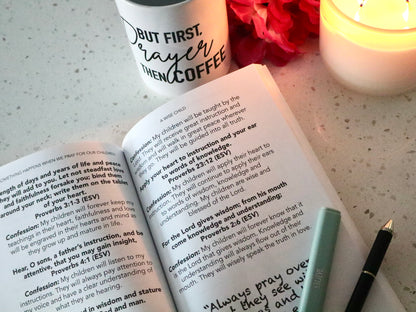 BUT FIRST,
Prayer
THEN COFFEE
SOMETHING HAPPENS WHEN WE PRAY FOR OUR CHILDREN
length of days and years of life and peace
they will add to you. Let not steadfast love
and faithfulness forsake you; bind them
around your neck; write them on the tablet
of your heart.
Proverbs 3:1-3 (ESV)
Confession: My children will forever keep my
teaching in their hearts and mind as
they grow up and mature in life.
Hear, O sons, a father's instruction, and be
attentive, that you may gain insight,
Proverbs 4:1 (ESV)
Confession: My children will listen to my
instructions. They will always pay attention
to my voice and have a clear understanding of
what they are hearing.
in wisdom and stature
A WISE CHILD
Confession: My children will be taught by the
and will receive great instruction and
They will walk in peace wherever
they go. They will be guided into all truth.
Apply your heart to instruction and your ear
to words of knowledge.
Proverbs 23:12 (ESV)
Confession: My children will apply their heart to
instruction. They will continue to apply their ears
to words of wisdom, knowledge and
understanding. My children are wise and
blessed of the Lord.
For the Lord gives wisdom; from his mouth
come knowledge and understanding;
Proverbs 2:6 (ESV)
Confession: My children will forever know that it
is the Lord that gives wisdom. Knowledge and
understanding will always flow out of their
mouth. They will wisely speak the truth in love.
"Always pray over